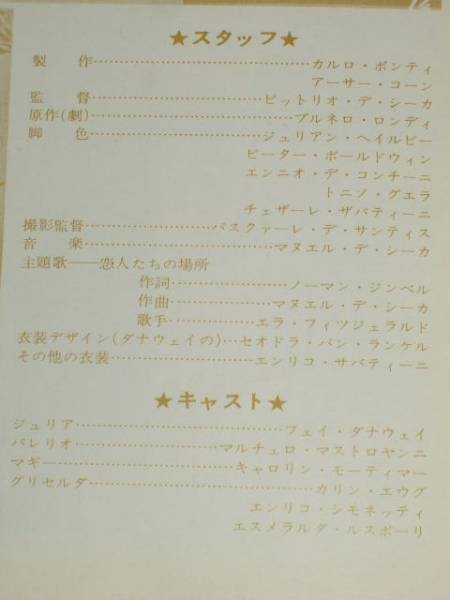 ★スタッフ★
製作………カルロ・ポンティ
アーサー・コーン
監督………ビットリオ・デ・シーカ
原作(劇)………ブルネロ・ロンディ
脚色………ジュリアン・ヘイルビー
ピーター・ボールドウィン
エンニオ・デ・コンチーニ
トニノ・グエラ
チェザーレ・ザバティーニ
撮影監督………パスクァーレ・デ・サンティス
音楽………マヌエル・デ・シーカ
主題歌――恋人たちの場所
作詞………ノーマン・ジンベル
作曲………マヌエル・デ・シーカ
歌手………エラ・フィツジェラルド
衣装デザイン(ダナウェイの)…セオドラ・バン・ランケル
その他の衣装………エンリコ・サバティーニ
★キャスト★
ジュリア………フェイ・ダナウェイ
バレリオ………マルチェロ・マストロヤンニ
マギー………キャロリン・モーティマー
グリセルダ………カリン・エウグ
エンリコ・シモネッティ
エスメラルダ・ルスポーリ